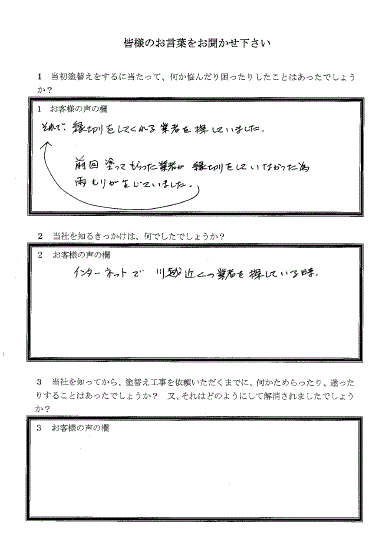 皆様のお言葉をお聞かせ下さい
1 当初塗替えをするに当たって、何か悩んだり困ったりしたことはあったでしょう
か？
1 お客様の声の欄
それで、縁切りをしてくれる業者を探していました。
前回塗ってもらった業者が縁切りをしていなかった為
雨もりが生じていました。
2 当社を知るきっかけは、何でしたでしょうか？
2 お客様の声の欄
インターネットで 川越近くの業者を探している時。
3 当社を知ってから、塗替え工事を依頼いただくまでに、何かためらったり、迷った
りすることはあったでしょうか？ 又、それはどのようにして解消されましたでしょう
か？
3 お客様の声の欄